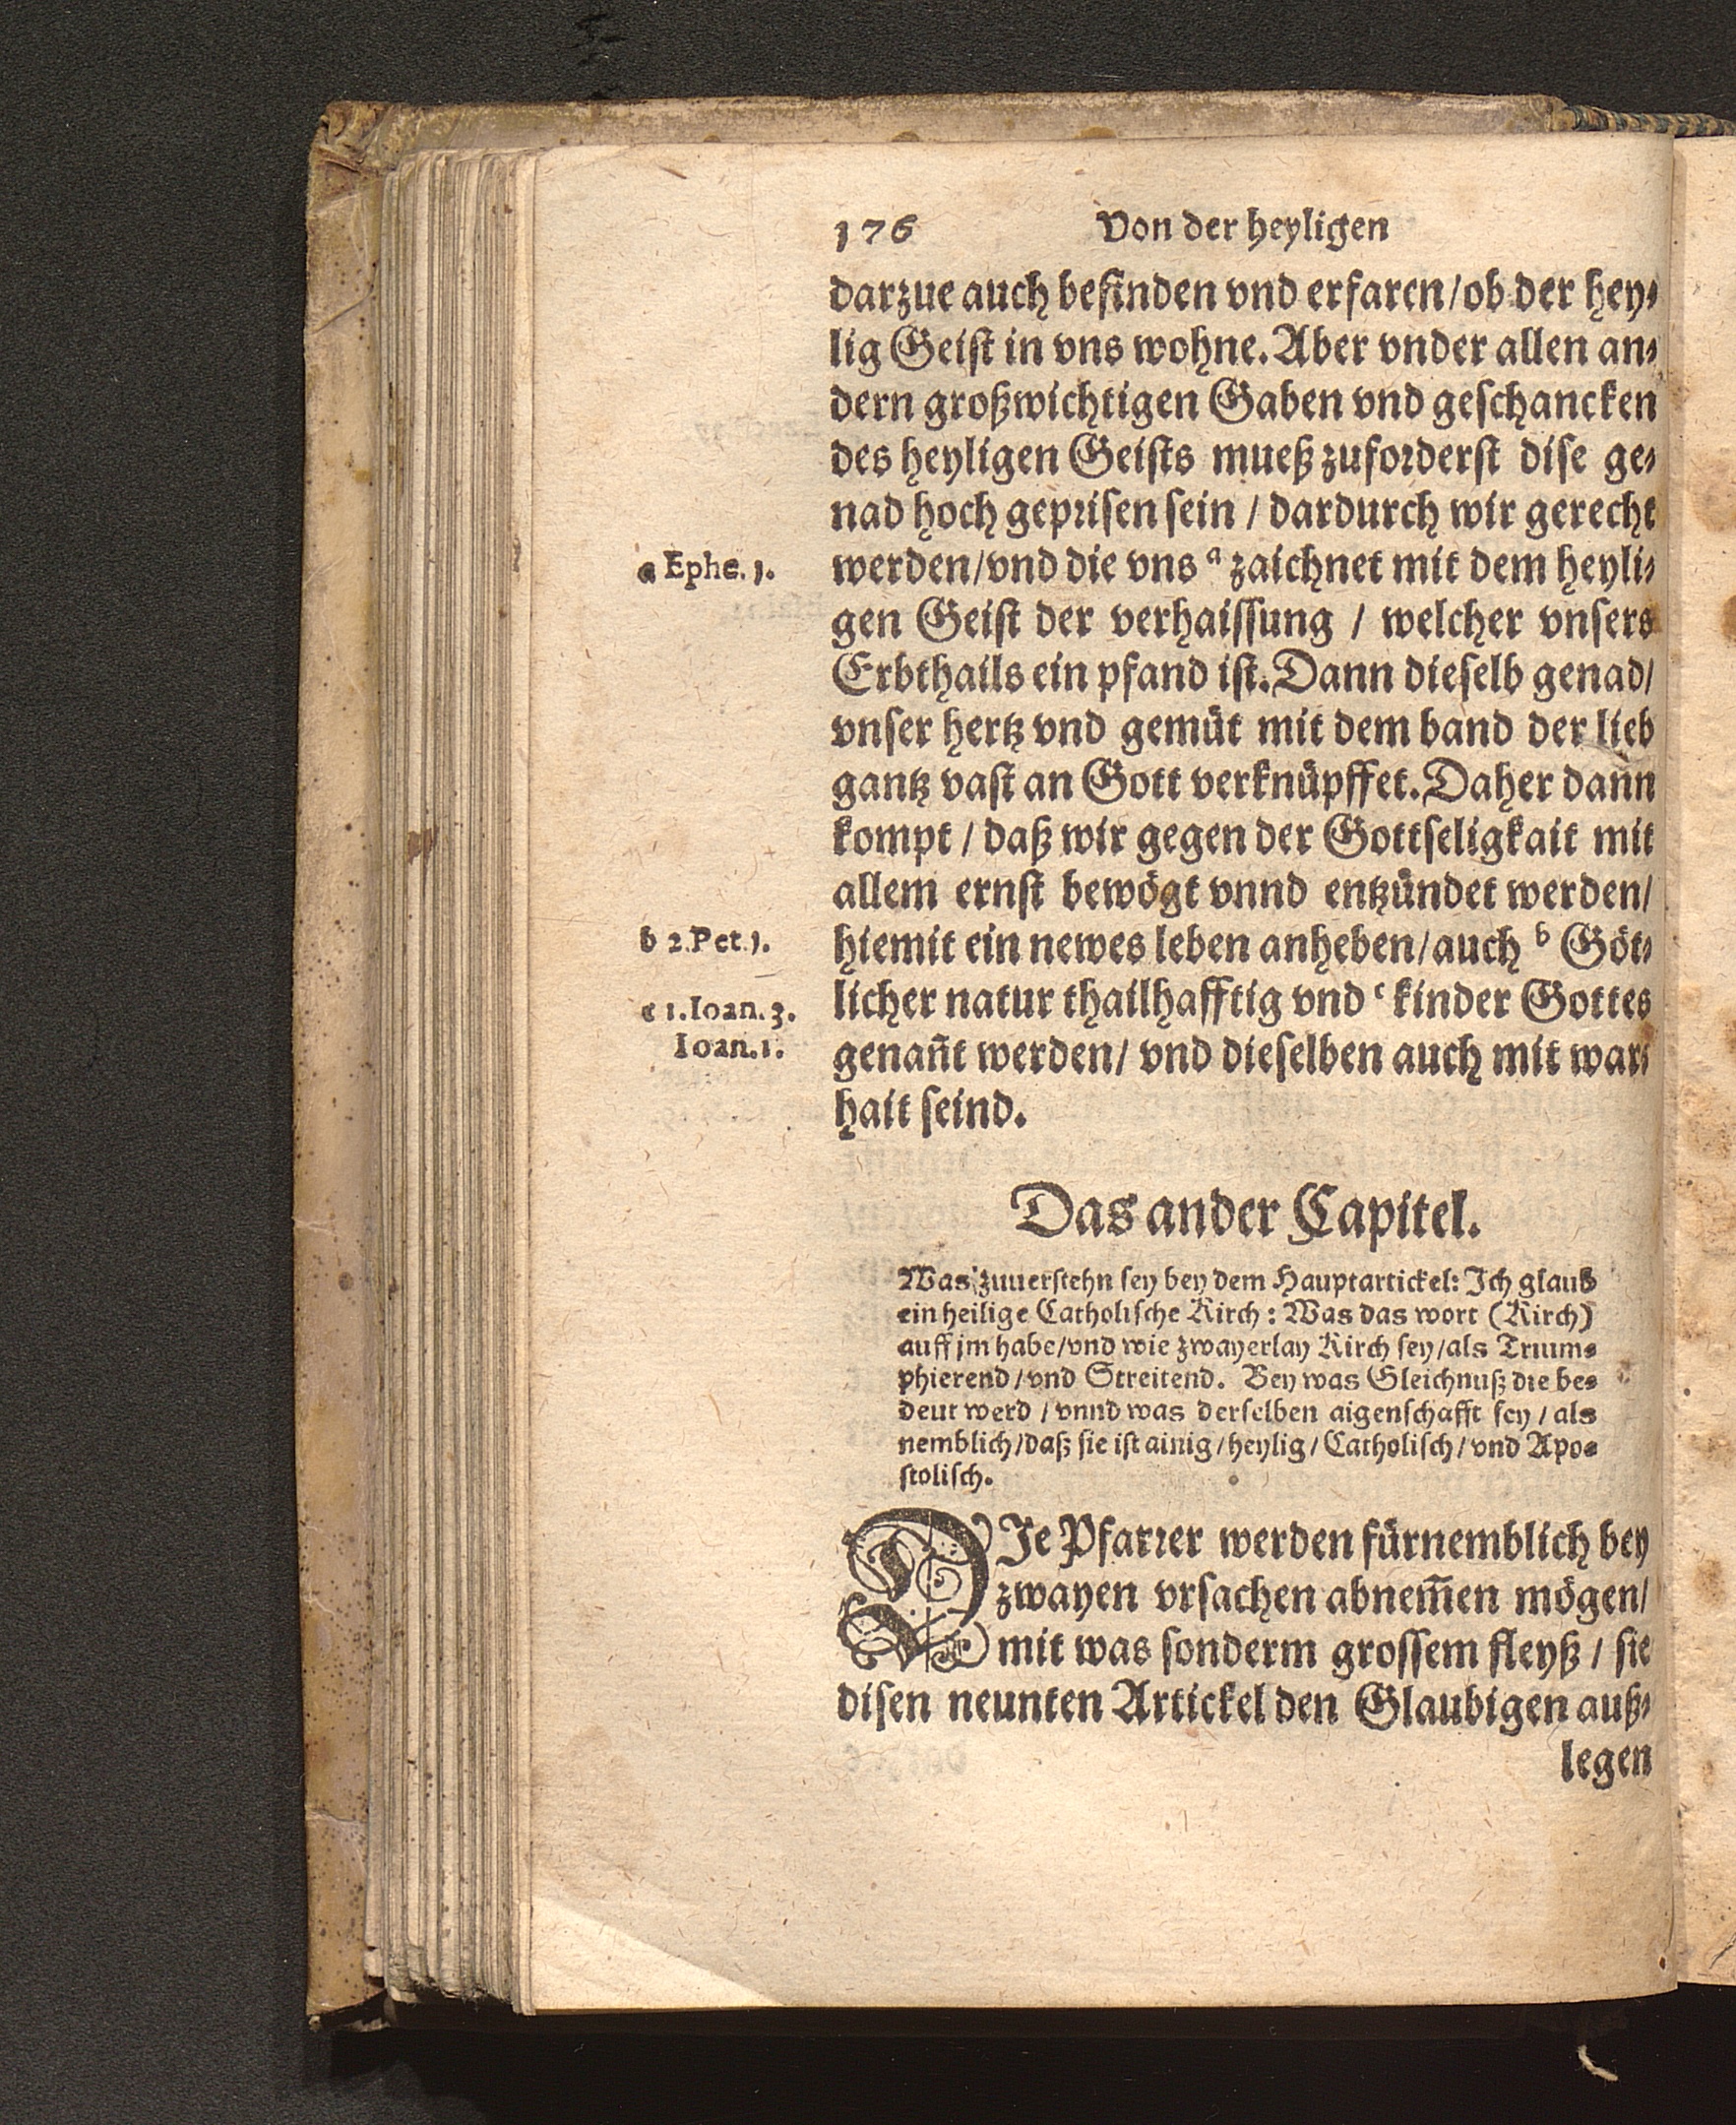 176 Von der heyligen
darzue auch befinden vnd erfaren/ob der hey⸗
lig Geist in vns wohne. Aber vnder allen an⸗
dern großwichtigen Gaben vnd geschancken
des heyligen Geists mueß zuforderst dise ge⸗
nad hoch geprisen sein / dardurch wir gerecht
a Ephe. 1.
werden/vnd die vns ᵃ zaichnet mit dem heyli⸗
gen Geist der verhaissung / welcher vnsers
Erbthails ein pfand ist. Dann dieselb genad/
vnser hertz vnd gemüt mit dem band der lieb
gantz vast an Gott verknüpffet. Daher dann
kompt / daß wir gegen der Gottseligkait mit
allem ernst bewögt vnnd entzündet werden/
b 2.Pet.1.
hiemit ein newes leben anheben/auch ᵇ Göt⸗
c 1.Ioan.3.
licher natur thailhafftig vnd ᶜ kinder Gottes
Ioan.1.
genañt werden/ vnd dieselben auch mit war⸗
hait seind.
Das ander Capitel.
Was zuuerstehn sey bey dem Hauptartickel: Ich glaub
ein heilige Catholische Kirch : Was das wort (Kirch)
auff jm habe/vnd wie zwayerlay Kirch sey/als Trium⸗
phierend/vnd Streitend. Bey was Gleichnuß die be⸗
deut werd / vnnd was derselben aigenschafft sey / als
nemblich/daß sie ist ainig/heylig/Catholisch/vnd Apo⸗
stolisch.
DIe Pfarrer werden fürnemblich bey
zwayen vrsachen abnem̃en mögen/
mit was sonderm grossem fleyß / sie
disen neunten Artickel den Glaubigen auß⸗
legen